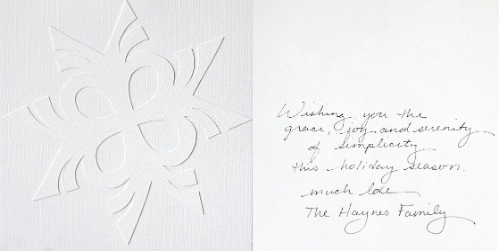 Wishing you the
grace, joy and serenity
of simplicity
this holiday season.
much love
The Haynes Family